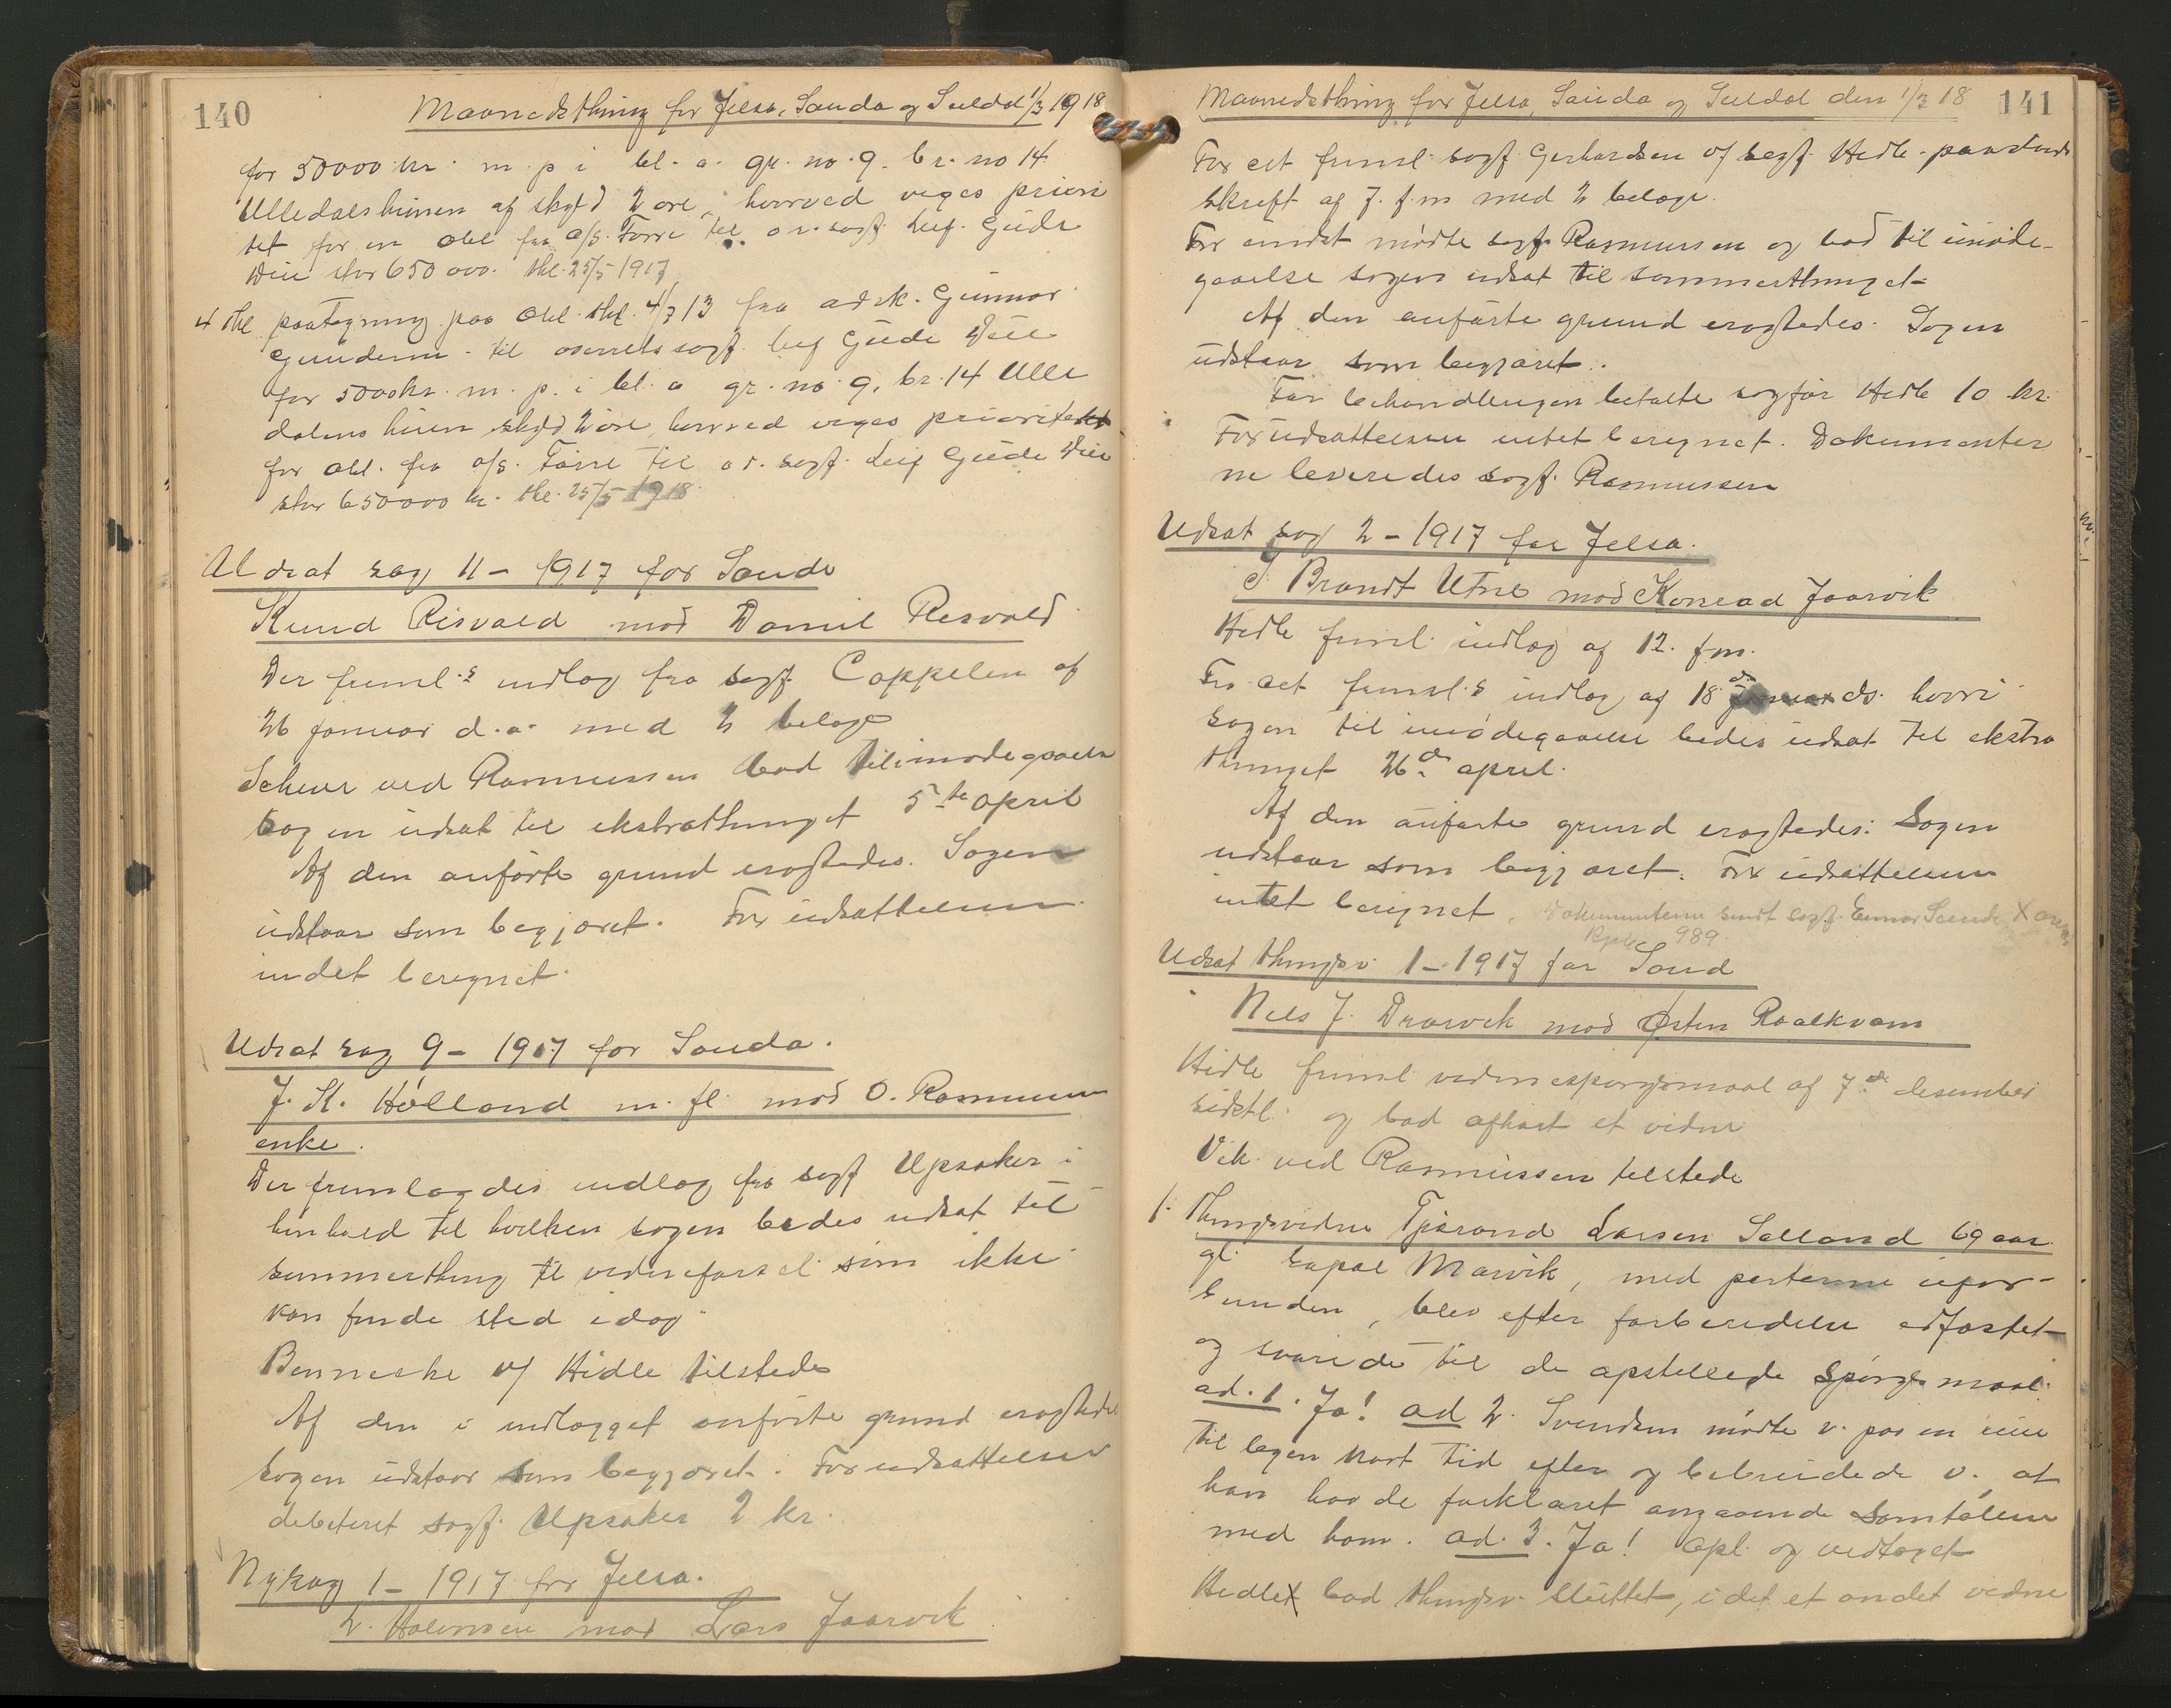 140
Maanedsthing for Jelsa, Sauda og Suldal 1/3 1918
for 50000 kr. m. p. i bl. a. gr. no. 9. br. no 14
Ulledalsheimen af skyld 2 øre, hvorved viges priori
tet for en obl fra A/S. Førre til o.r. sagf. Leif Gude
Due stor 650 000. thl. 25/5 1917
4 thl paategning paa obl. thl. 4/7 13 fra adsk. Gunnar
Gundersen til overretssagf. Leif Gude Due
for 5000 kr. m. p. i bl. a gr. no. 9, br. 14 Ulle
dalens heien skyld 2 øre, hvorved viges prioritet
for obl. fra a/s. Førre til o.r. sagf. Leif Gude Due
stor 650000 kr. thl. 25/5 1918
Udsat sag 11 - 1917 for Sauda
Knud Risvold mod Daniel Risvold
Der freml.s indlæg fra sagf. Cappelen af
26 januar d.a. med 2 bilage
Scheie ved Rasmussen bad til imødegaaelse
sagen udsat til ekstrathinget 5te april
Af den anførte grund eragtedes. Sagen
udstaar som begjæret. For udsættelsen
indet beregnet.
Udsat sag 9 - 1917 for Sauda.
J. K. Hølland m. fl. mod O. Rasmussens
enke.
Der fremlagdes indlæg fra sagf Opsaker i
henhold til hvilken sagen bedes udsat til
sommerthing til vidneførsel som ikke
kan finde sted idag
Benneche v/ Hidle tilstede
Af den i indlægget anførte grund eragtedes
sagen udstaar som begjæret. For udsættelsen
debiteret sagf. Opsaker 2 kr.
Ny sag 1 - 1917 for Jelsa.
L. Halvorsen mod Lars Jaarvik
Maanedsthing for Jelsa, Sauda og Suldal den 1/3 18
141
For cit freml. sagf. Gerhardsen v/ sagf. Hidle paastands
skrift af 7. f.m med 2 bilage.
For indst mødte sagf. Rasmussen og bad til imøde-
gaaelse sagen udsat til sommerthinget
Af den anførte grund eragtedes. Sagen
udstaar som begjæret.
For behandlingen betalte sagfør Hidle 10 kr.
For udsættelsen intet beregnet. Dokumenter
ne leveredes sagf. Rasmussen
Udsat sag 2 - 1917 for Jelsa.
J. Brandt Utne mod Konrad Jaarvik
Hidle freml. indlæg af 12. f.m.
For cit freml.s indlæg af 18 ds. hvori
sagen til imødegaaelse bedes udsat til ekstra
thinget 26de april.
Af den anførte grund eragtedes: Sagen
udstaar som begjæret. For udsættelsen
intet beregnet. Dokumenterne sendt sagf. Einar Sunde
989
Udsat thingsv. 1 - 1917 for Saud
Nils J. Drarvik mod Østen Raalkvam
Hidle freml vidnespørgsmaal af 7de desember
sidstl. og bad afhørt et vidne
Vik ved Rasmussen tilstede
1. Thingsvidne Tjerand Larsen Salland 69 aar
gl. Sapol Marvik, med parterne ufor-
bunden, blev efter forberedelse edfæstet
og svarede til de opstillede spørgsmaal:
ad. 1. Ja! ad 2. Svendsen mødte v. paa en
til lagen kort tid efter og bebreidede v. at
han havde forklaret angaaende samtalen
med ham. ad. 3. Ja! Opl. og vedtaget
Hidle bad thingsv. sluttet, idet et andet vidne